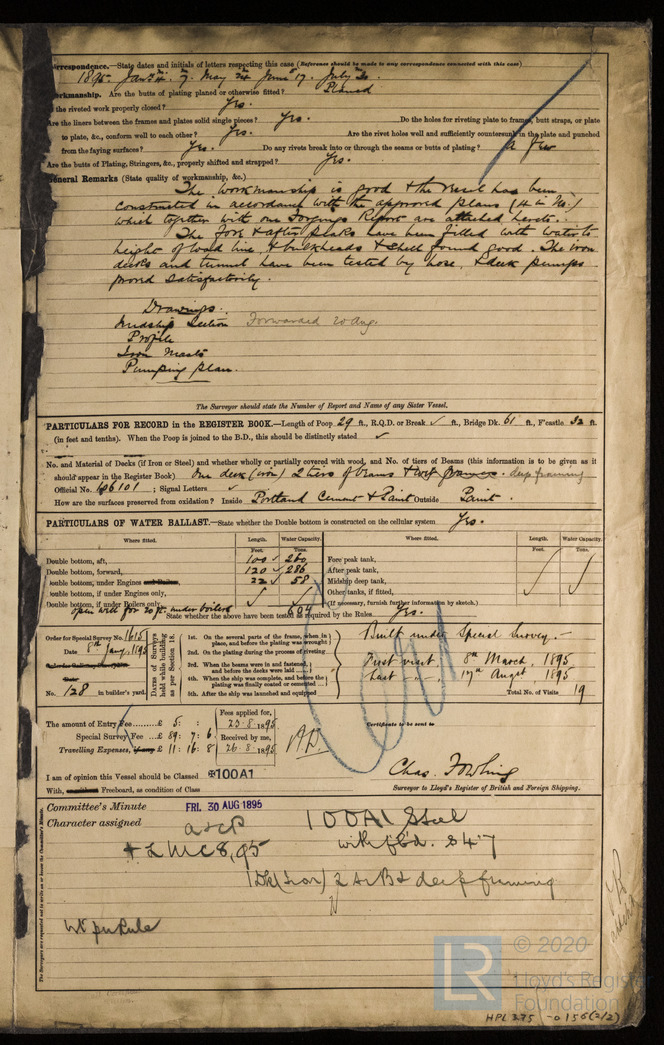 Correspondence.—State dates and initials of letters respecting this case (Reference should be made to any correspondence connected with this case)
1895 Jany 4. 7. May 24 June 17. July 20.
Workmanship. Are the butts of plating planed or otherwise fitted? Planed
Is the riveted work properly closed? Yes.
Are the liners between the frames and plates solid single pieces? Yes. Do the holes for riveting plate to frames, butt straps, or plate
to plate, &c., conform well to each other? Yes. Are the rivet holes well and sufficiently countersunk in the plate and punched
from the faying surfaces? Yes. Do any rivets break into or through the seams or butts of plating? A few
Are the butts of Plating, Stringers, &c., properly shifted and strapped? Yes.
General Remarks (State quality of workmanship, &c.)
The workmanship is good & the vessel has been
constructed in accordance with the approved plans (4 in No.)
which together with one Forgings Report are attached hereto.
The Fore & after peaks have been filled with water to
height of load line, & bulkheads & shell found good. The iron
decks and tunnel have been tested by hose, & deck pumps
proved satisfactorily.
Drawings.
Midship Section Forwarded 20 Aug.
Profile
Iron Masts
Pumping plan.
The Surveyor should state the Number of Report and Name of any Sister Vessel.
PARTICULARS FOR RECORD in the REGISTER BOOK.—Length of Poop 29 ft., R.Q.D. or Break ✓ ft., Bridge Dk. 61 ft., F'castle 32 ft.
(in feet and tenths). When the Poop is joined to the B.D., this should be distinctly stated ✓
No. and Material of Decks (if Iron or Steel) and whether wholly or partially covered with wood, and No. of tiers of Beams (this information is to be given as it
should appear in the Register Book) One deck (iron) 2 tiers of beams & web frames. deep framing
Official No. 106101 ; Signal Letters ✓
How are the surfaces preserved from oxidation? Inside Portland Cement & Paint Outside Paint.
PARTICULARS OF WATER BALLAST.—State whether the Double bottom is constructed on the cellular system Yes.
Where fitted. Length. Water Capacity. Where fitted. Length. Water Capacity.
Feet. Tons. Feet. Tons.
Double bottom, aft, 100 ✓ 260 Fore peak tank,
Double bottom, forward, 120 ✓ 286 After peak tank,
Double bottom, under Engines and Boilers, 22 ✓ 58 Midship deep tank,
Double bottom, if under Engines only, Other tanks, if fitted,
Double bottom, if under Boilers only, 604 (If necessary, furnish further information by sketch.)
open well for 20 ft. under boilers
State whether the above have been tested as required by the Rules Yes.
Order for Special Survey No. 1615
Date 8th Jany. 1895
No. 128 in builder's yard.
Dates of Surveys held while building as per Section 18.
1st. On the several parts of the frame, when in place, and before the plating was wrought
2nd. On the plating during the process of riveting
3rd. When the beams were in and fastened, and before the decks were laid
4th. When the ship was complete, and before the plating was finally coated or cemented
5th. After the ship was launched and equipped
Built under Special Survey.—
First visit, 8th March, 1895
Last -"-, 17th Augst, 1895
Total No. of Visits 19
The amount of Entry Fee £ 5 : :
Special Survey Fee £ 89 : 7 : 6
Travelling Expenses, if any £ 11 : 16 : 8
Fees applied for,
23.8.1895
Received by me,
26.8.1895
Certificate to be sent to
I am of opinion this Vessel should be Classed ✠100A1
With, Freeboard, as condition of Class
Surveyor to Lloyd's Register of British and Foreign Shipping.
Committee's Minute FRI. 30 AUG 1895
Character assigned 100A1 Steel
a&cp with fb'd. 847
+ LMC 8,95
1Dk (Iron) 2 trs Bs deep framing
Wt pr Rule
The Surveyors are requested not to write on or below the Committee's Minute.
LR © 2020
Lloyd's Register
Foundation
HPL 375 -0156 (2/2)